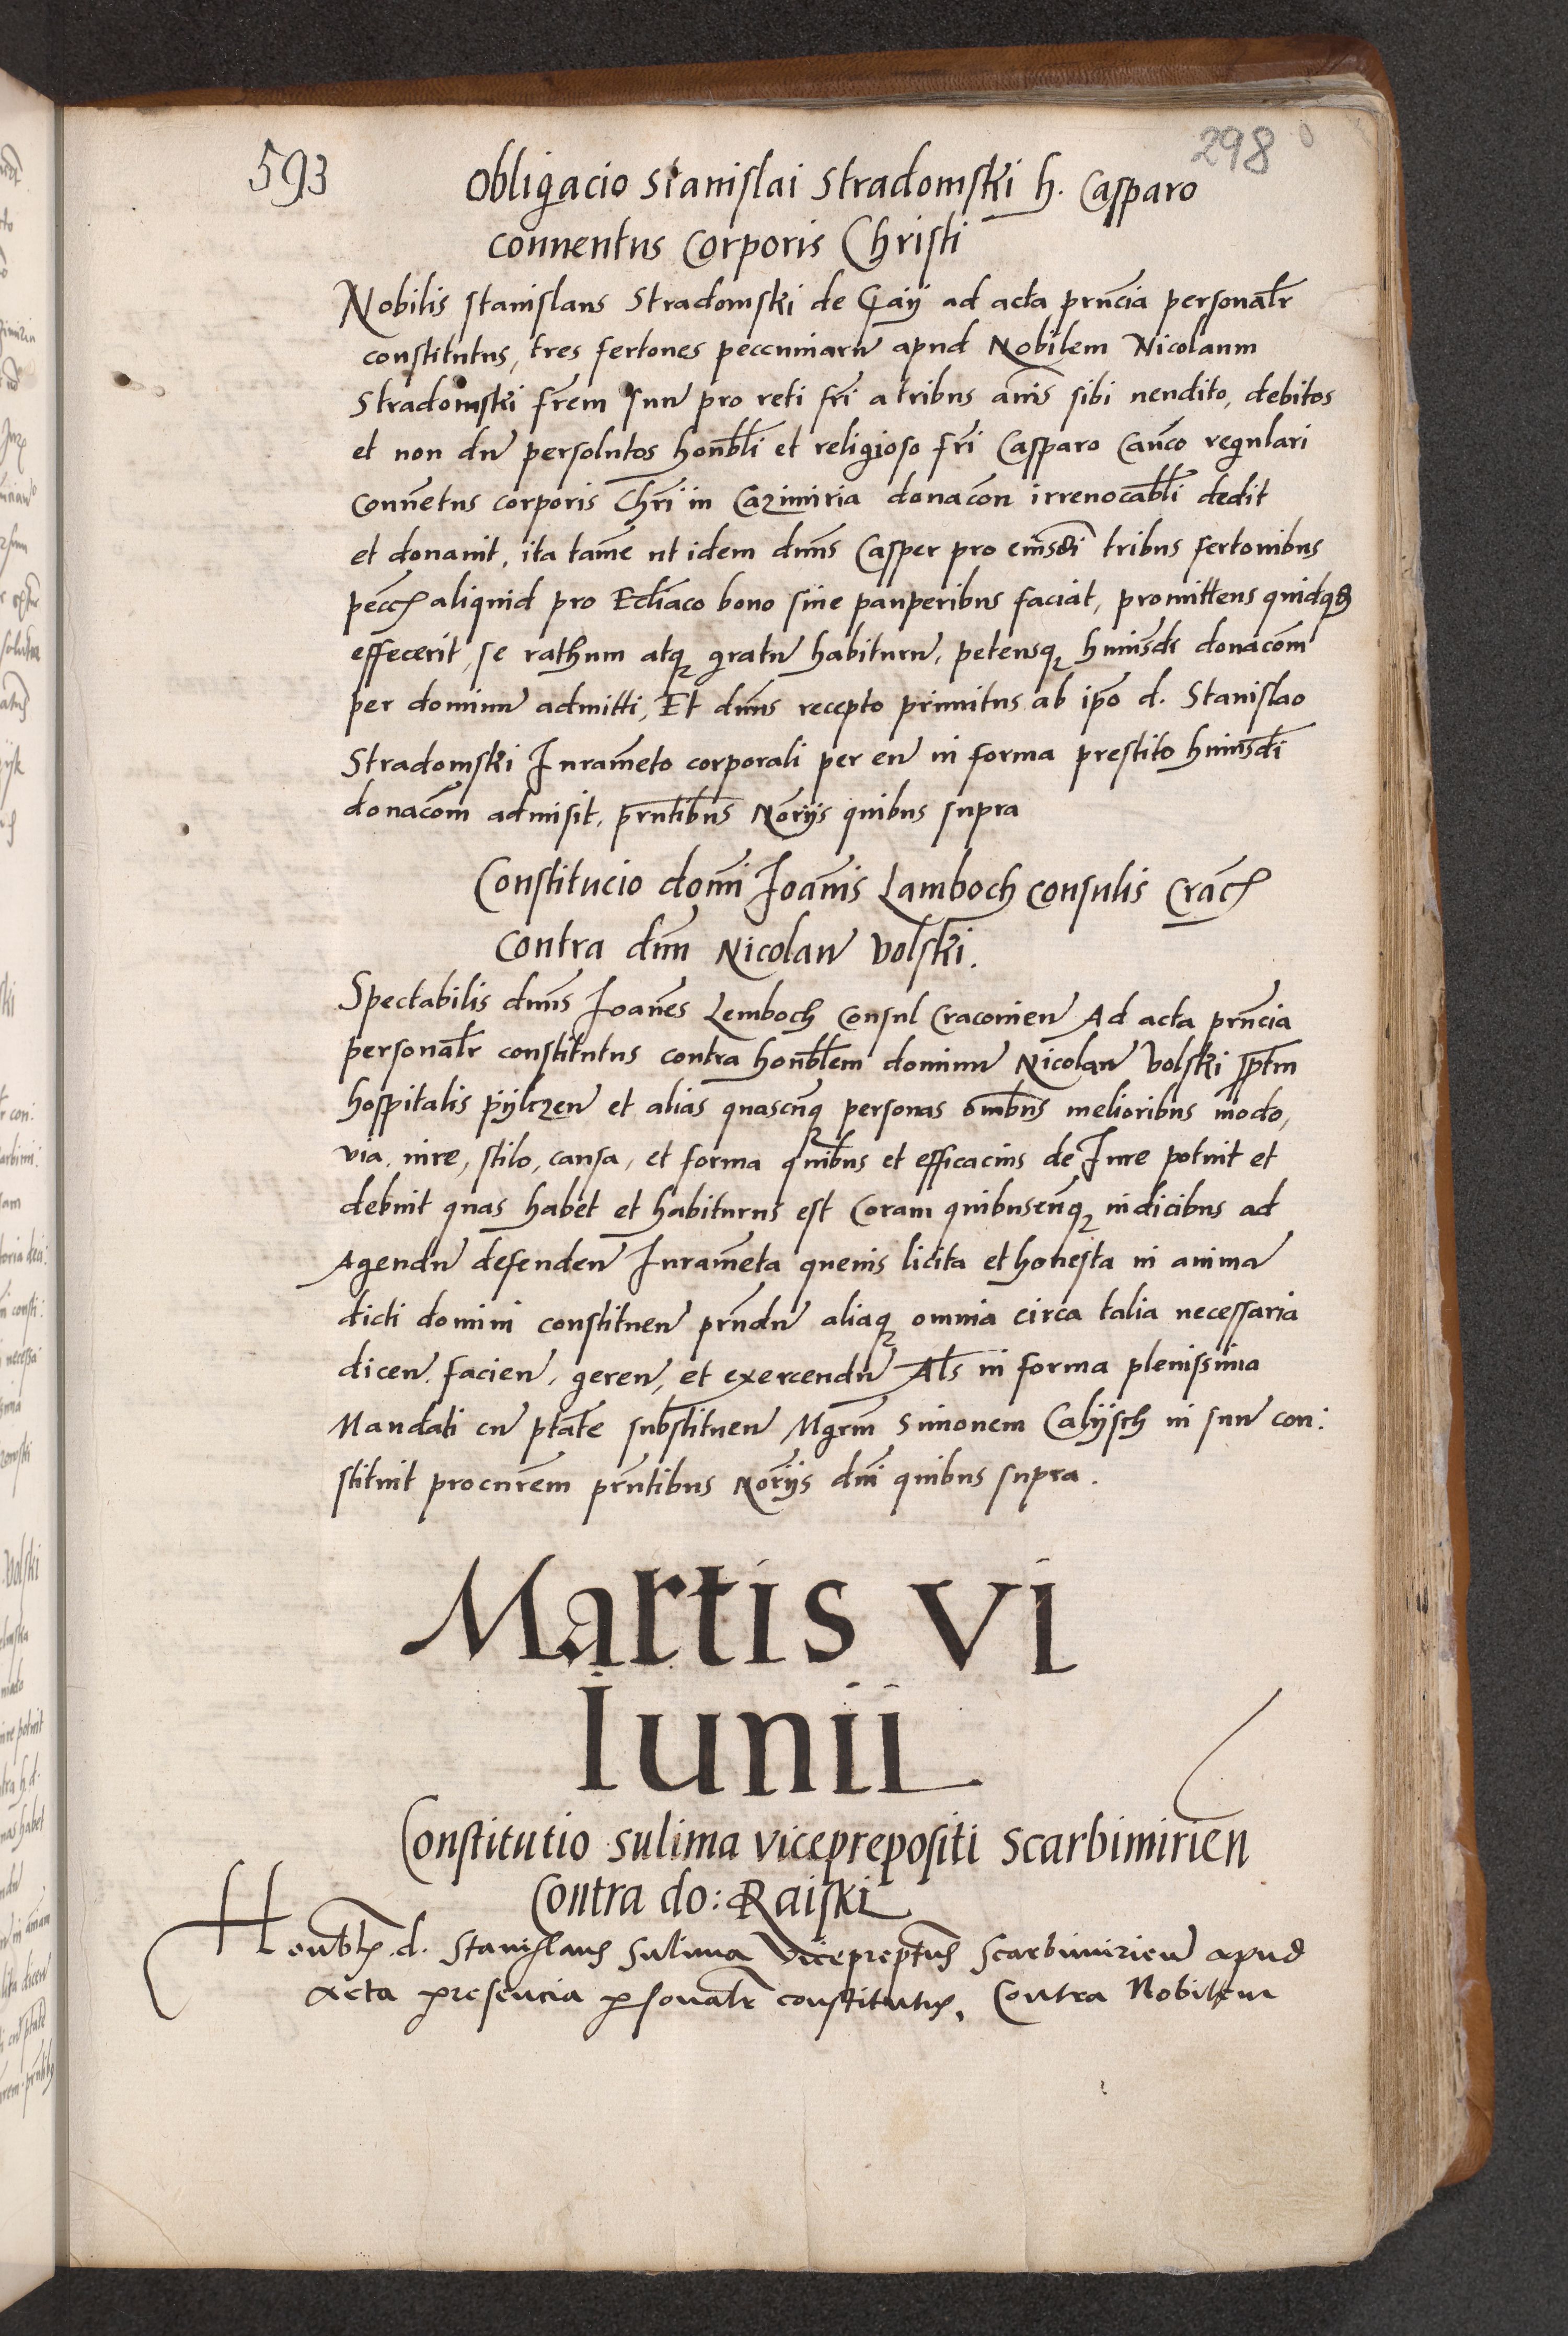 593
298
Obligacio Stanislai Stradomski h. Casparo
conuentus Corporis Christi
Nobilis Stanislaus Stradomski de Gaij ad acta prncia personalr
constitutus, tres fertones peccuniarū apud Nobilem Nicolaum
Stradomski frem suū pro reti fri a tribus annis sibi uendito, debitos
et non dū persolutos honbli et religioso fri Casparo Canco regulari
Conuetus corporis Chri in Cazimiria donacon irreuocabli dedit
et donauit, ita tame ut idem dnus Casper pro eiusdi tribus fertonibus
pecc aliquid pro Ecliaco bono siue pauperibus faciat, promittens quidqd
effecerit, se rathum atqz gratū habiturū, petensqz huiusdi donacom
per dominū admitti, Et dnus recepto primitus ab ipo d. Stanislao
Stradomski Iurameto corporali per eū in forma prestito huiusdi
donacom admisit, prntibus Norijs quibus supra
Constitucio domi Ioanis Lamboch Consulis Crac
contra dnm Nicolaū Volski.
Spectabilis dnus Ioanes Lemboch Consul Cracouien Ad acta prncia
personalr constitutus contra honblem dominū Nicolaū Volski pptm
hospitalis pijlczen et alias quascunqz personas ombus melioribus modo,
via, iure, stilo, causa, et forma quibus et efficacius de Iure potuit et
debuit quas habet et habiturus est Coram quibuscunqz iudicibus ad
Agendū defenden Iurameta queuis licita et honesta in anima
dicti domini constituen prndū aliaqz omnia circa talia necessaria
dicen. facien, geren, et exercendū Als in forma plenissima
Mandati cū ptate substituen Mgrm Simonem Calijsch in suū con:
stituit procurem prntibus Norijs dni quibus supra.
Martis VI
Iunii
Constitutio Sulima viceprepositi Scarbimirien
Contra do: Raiski
Honbls. d. Stanislaus Sulima Vicepreptus Scarbimirien apud
Acta presencia personalr constitutus, Contra Nobilem